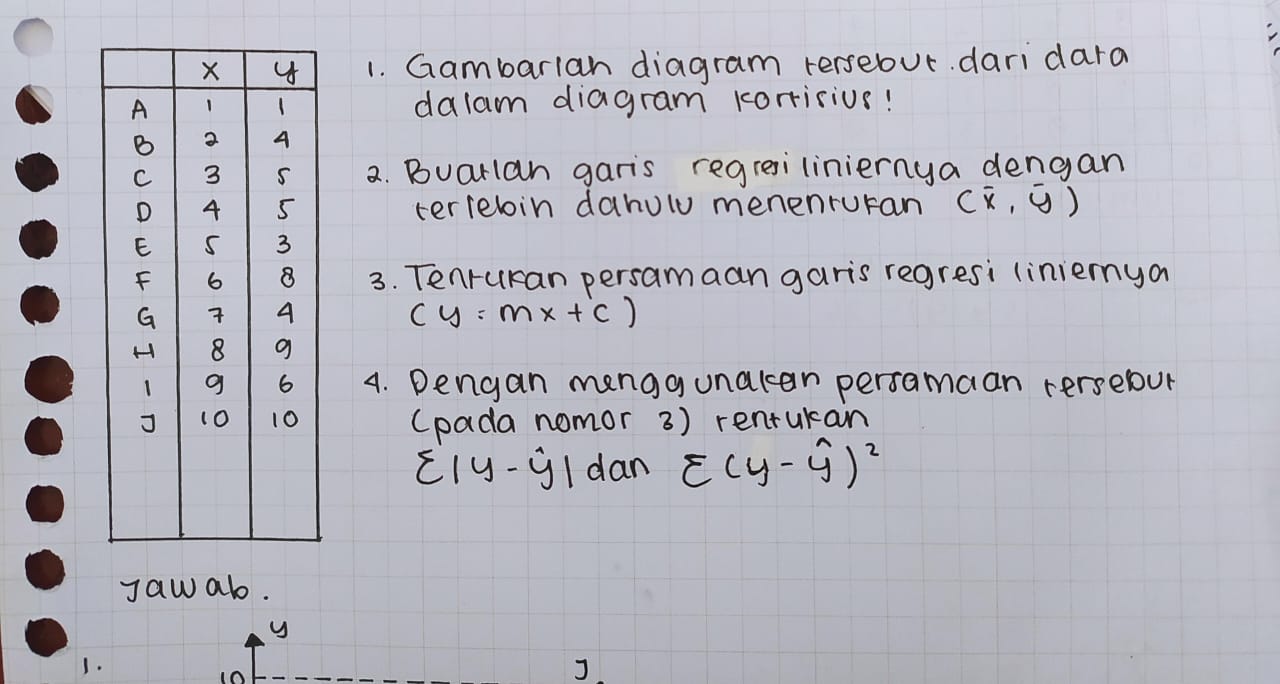 x y
A 1 1
B 2 4
C 3 5
D 4 5
E 5 3
F 6 8
G 7 4
H 8 9
I 9 6
J 10 10
1. Gambarlah diagram tersebut. dari data
dalam diagram kartisius!
2. Buatlah garis regresi liniernya dengan
terlebih dahulu menentukan (x̄, ȳ)
3. Tentukan persamaan garis regresi liniernya
(y = mx + c)
4. Dengan menggunakan persamaan tersebut
(pada nomor 3) tentukan
Σ|y - ŷ| dan Σ(y - ŷ)²
Jawab.
1.
y
10
J